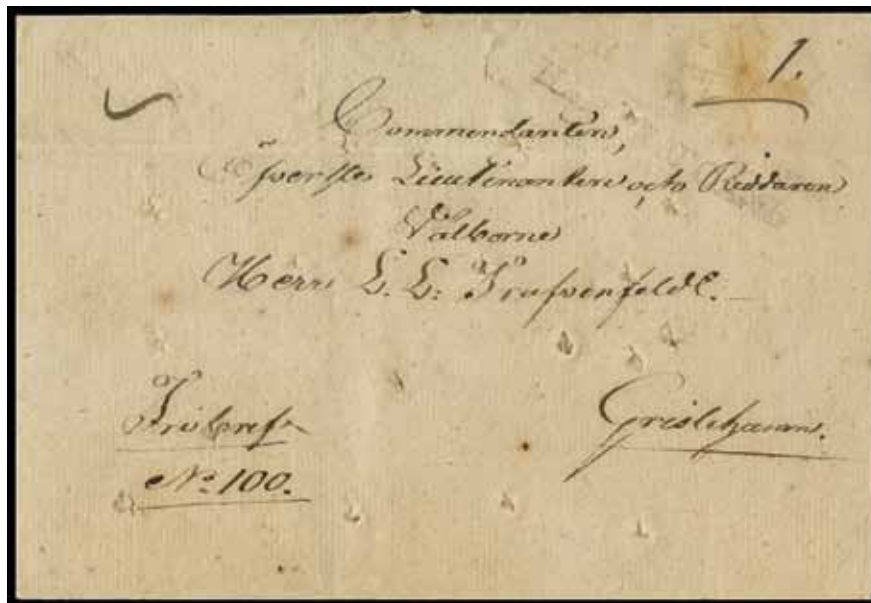 1.
Commendanten,
Öfverste Lieutenanten och Riddaren
Välborne
Herr L. L.
Fribref
No 100.
Grislehamn.